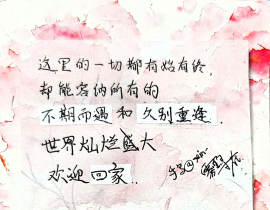 这里的一切都有始有终，
却能容纳所有的
不期而遇 和 久别重逢
世界灿烂盛大
欢迎回家